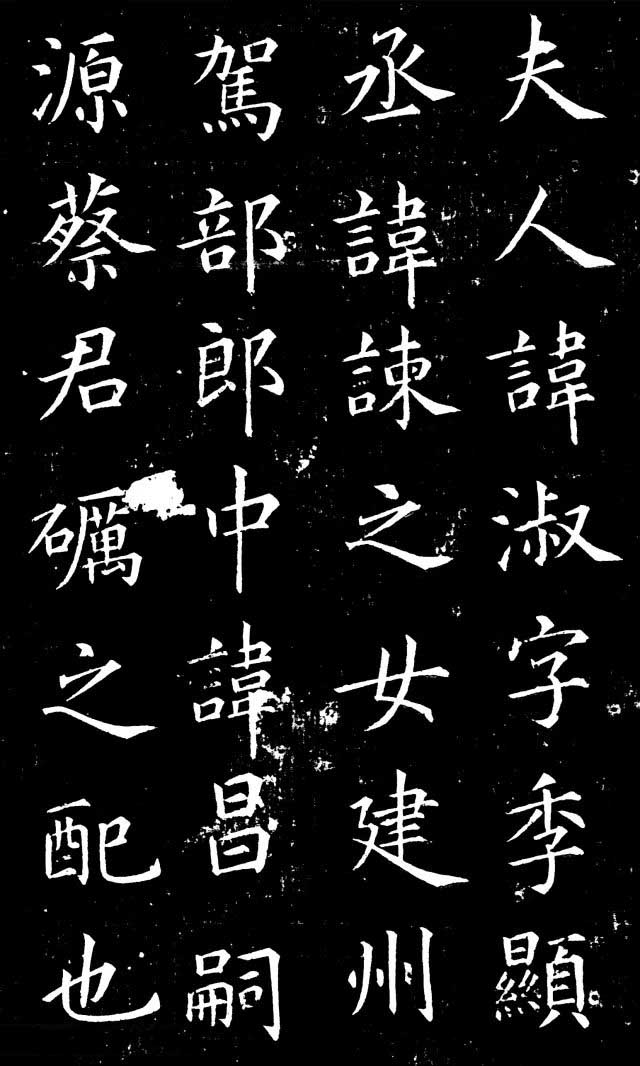 夫人諱淑字季顯
丞諱諫之女建州
駕部郎中諱昌嗣
源蔡君礪之配也